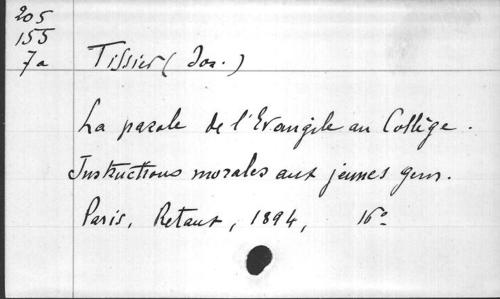 205
155
7a
Tissier (Jos.)
La parole de l'Evangile au Collège.
Instructions morales aux jeunes gens.
Paris, Retaux, 1894, 16°